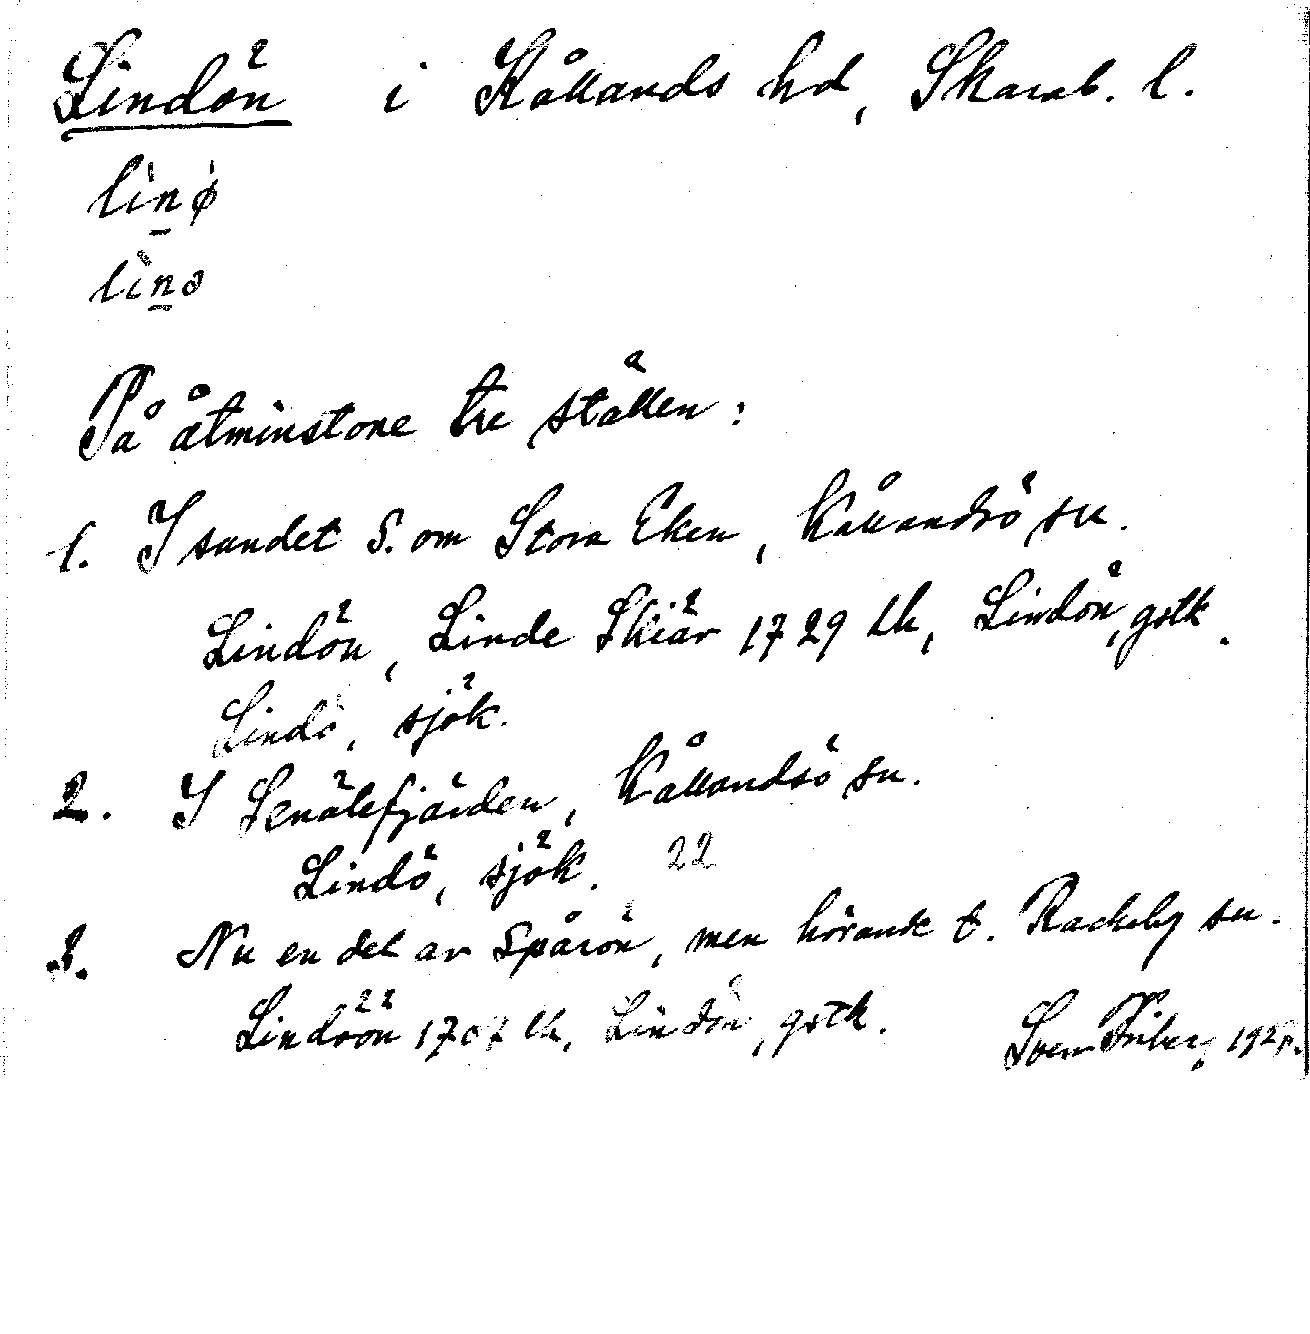 Lindön i Kållands hd, Skarab. l.
linø
linə
På åtminstone tre ställen:
1. I sundet S. om Stora Eken, Kållandsö sn.
Lindön, Linde Skiär 1729 lk, Lindön, gstk.
Lindö, sjök.
2. I Lenälefjärden, Kållandsö sn.
Lindö, sjök. 22
3. Nu en del av Spårön, men hörande t. Rackeby sn.
Lindöön 1707 lk, Lindön, gstk.
Sven